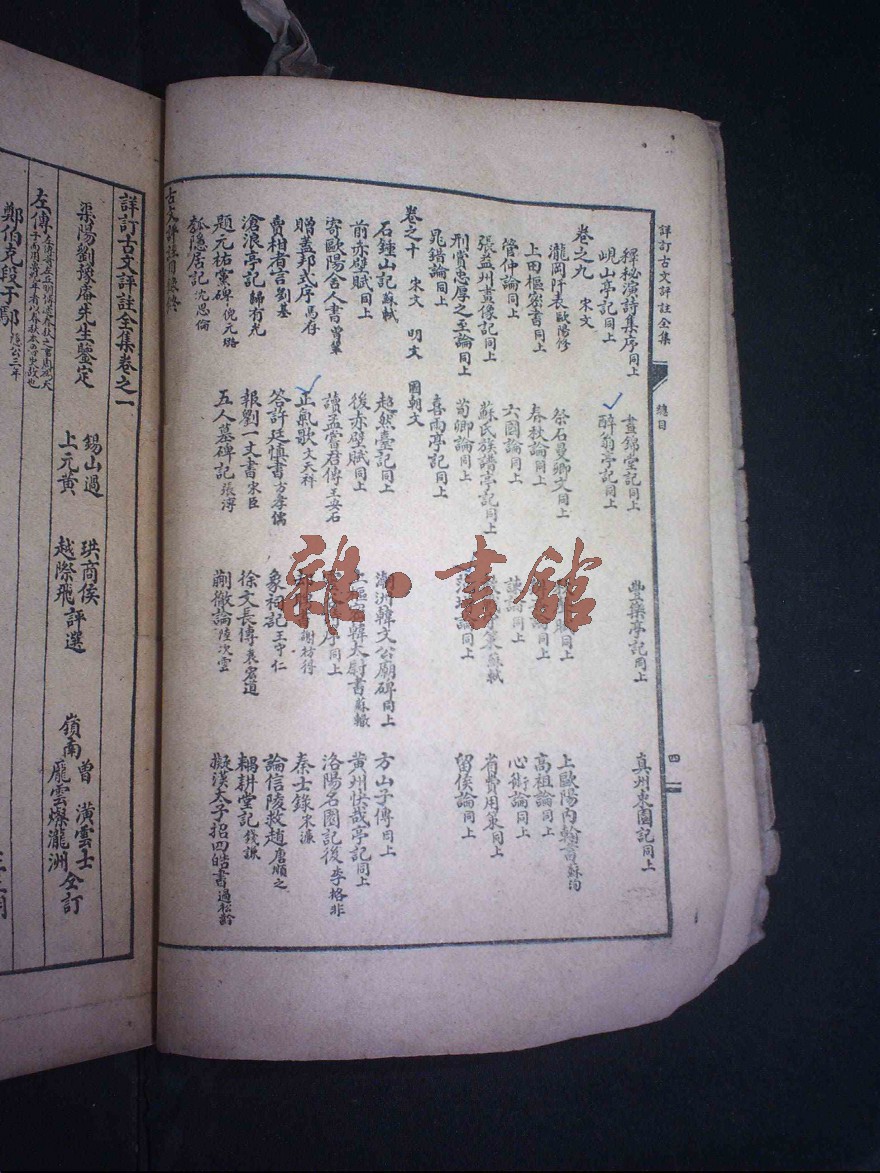 詳訂古文評註全集
總目
四
釋秘演詩集序同上 晝錦堂記同上 豐樂亭記同上 真州東園記同上
峴山亭記同上 醉翁亭記同上
卷之九 宋文
瀧岡阡表歐陽修 祭石曼卿文同上 賦同上 上歐陽內翰書蘇洵
上田樞密書同上 春秋論同上 論同上 高祖論同上
管仲論同上 六國論同上 諫論同上 心術論同上
張益州畫像記同上 蘇氏族譜亭記同上 策蘇軾 省費用策同上
刑賞忠厚之至論同上 荀卿論同上 范增論同上 留侯論同上
晁錯論同上 喜雨亭記同上
卷之十 宋文 明文 國朝文
石鍾山記蘇軾 超然臺記同上 潮洲韓文公廟碑同上 方山子傳同上
前赤壁賦同上 後赤壁賦同上 上樞密韓太尉書蘇轍 黃州快哉亭記同上
寄歐陽舍人書曾鞏 讀孟嘗君傳王安石 序同上 洛陽名園記後李格非
贈蓋邦式序馬存 正氣歌文天祥 謝枋得 秦士錄宋濂
賣柑者言劉基 答許廷慎書方孝儒 象祠記王守仁 論信陵救趙唐順之
滄浪亭記歸有光 報劉一丈書宋臣 徐文長傳袁宏道 耦耕堂記錢謙
題元祐黨碑倪元璐 五人墓碑記張溥 蒯徹論陸次雲 擬漢太子招四皓書過松齡
瓠隱居記沈思倫
古文評註目錄終
雜·書館
詳訂古文評註全集卷之一
梁陽劉豫庵先生鑒定 錫山過 珙商侯 嶺南曾 潢雲士
上元黃 越際飛評選 龐雲燦瀧洲仝訂
左傳
鄭伯克段于鄢隱公三年